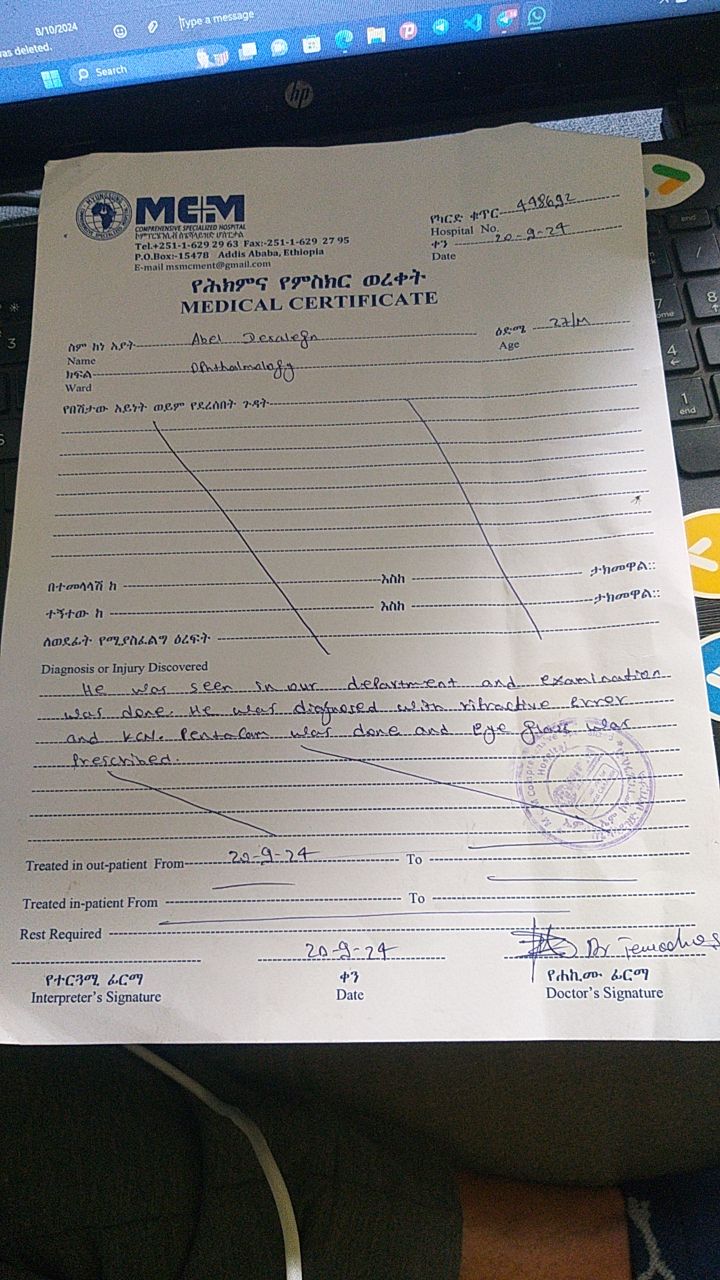 8/10/2024
Type a message
was deleted.
Search
hp
MCM
COMPREHENSIVE SPECIALIZED HOSPITAL
Tel.+251-1-629 29 63 Fax:-251-1-629 27 95
P.O.Box:-15478 Addis Ababa, Ethiopia
E-mail msmcment@gmail.com
የካርድ ቁጥር 498692
Hospital No.
ቀን 20-9-24
Date
የሕክምና የምስክር ወረቀት
MEDICAL CERTIFICATE
ስም ከነ አያት Abel Desalegn ዕድሜ 27/M
Name Age
ክፍል Ophthalmology
Ward
የበሽታው አይነት ወይም የደረሰበት ጉዳት
በተመላላሽ ከ እስከ ታክመዋል::
ተኝተው ከ እስከ ታክመዋል::
ለወደፊት የሚያስፈልግ ዕረፍት
Diagnosis or Injury Discovered
He was seen in our department and examination
was done. He was diagnosed with rifractive Error
and KCN. Pentacam was done and eye glass was
Prescribed.
Treated in out-patient From 20-9-24 To
Treated in-patient From To
Rest Required
20-9-24 Dr
የተርጓሚ ፊርማ ቀን የሐኪሙ ፊርማ
Interpreter's Signature Date Doctor's Signature
end
7
8
4
1
end
3